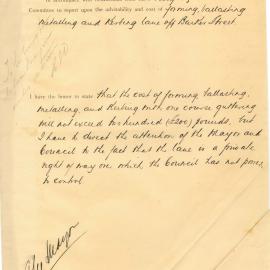 Committee to report upon the advisability and cost of forming, ballasting
metalling and Kerbing lane off Barker Street
I have the honor to state that the cost of forming, ballasting,
metalling, and Kerbing with one course guttering
will not exceed two hundred (£200) pounds, but
I have to direct the attention of the Mayor and
Council to the fact that the lane is a private
right of way over which, the Council has not power
to control
The Mayor